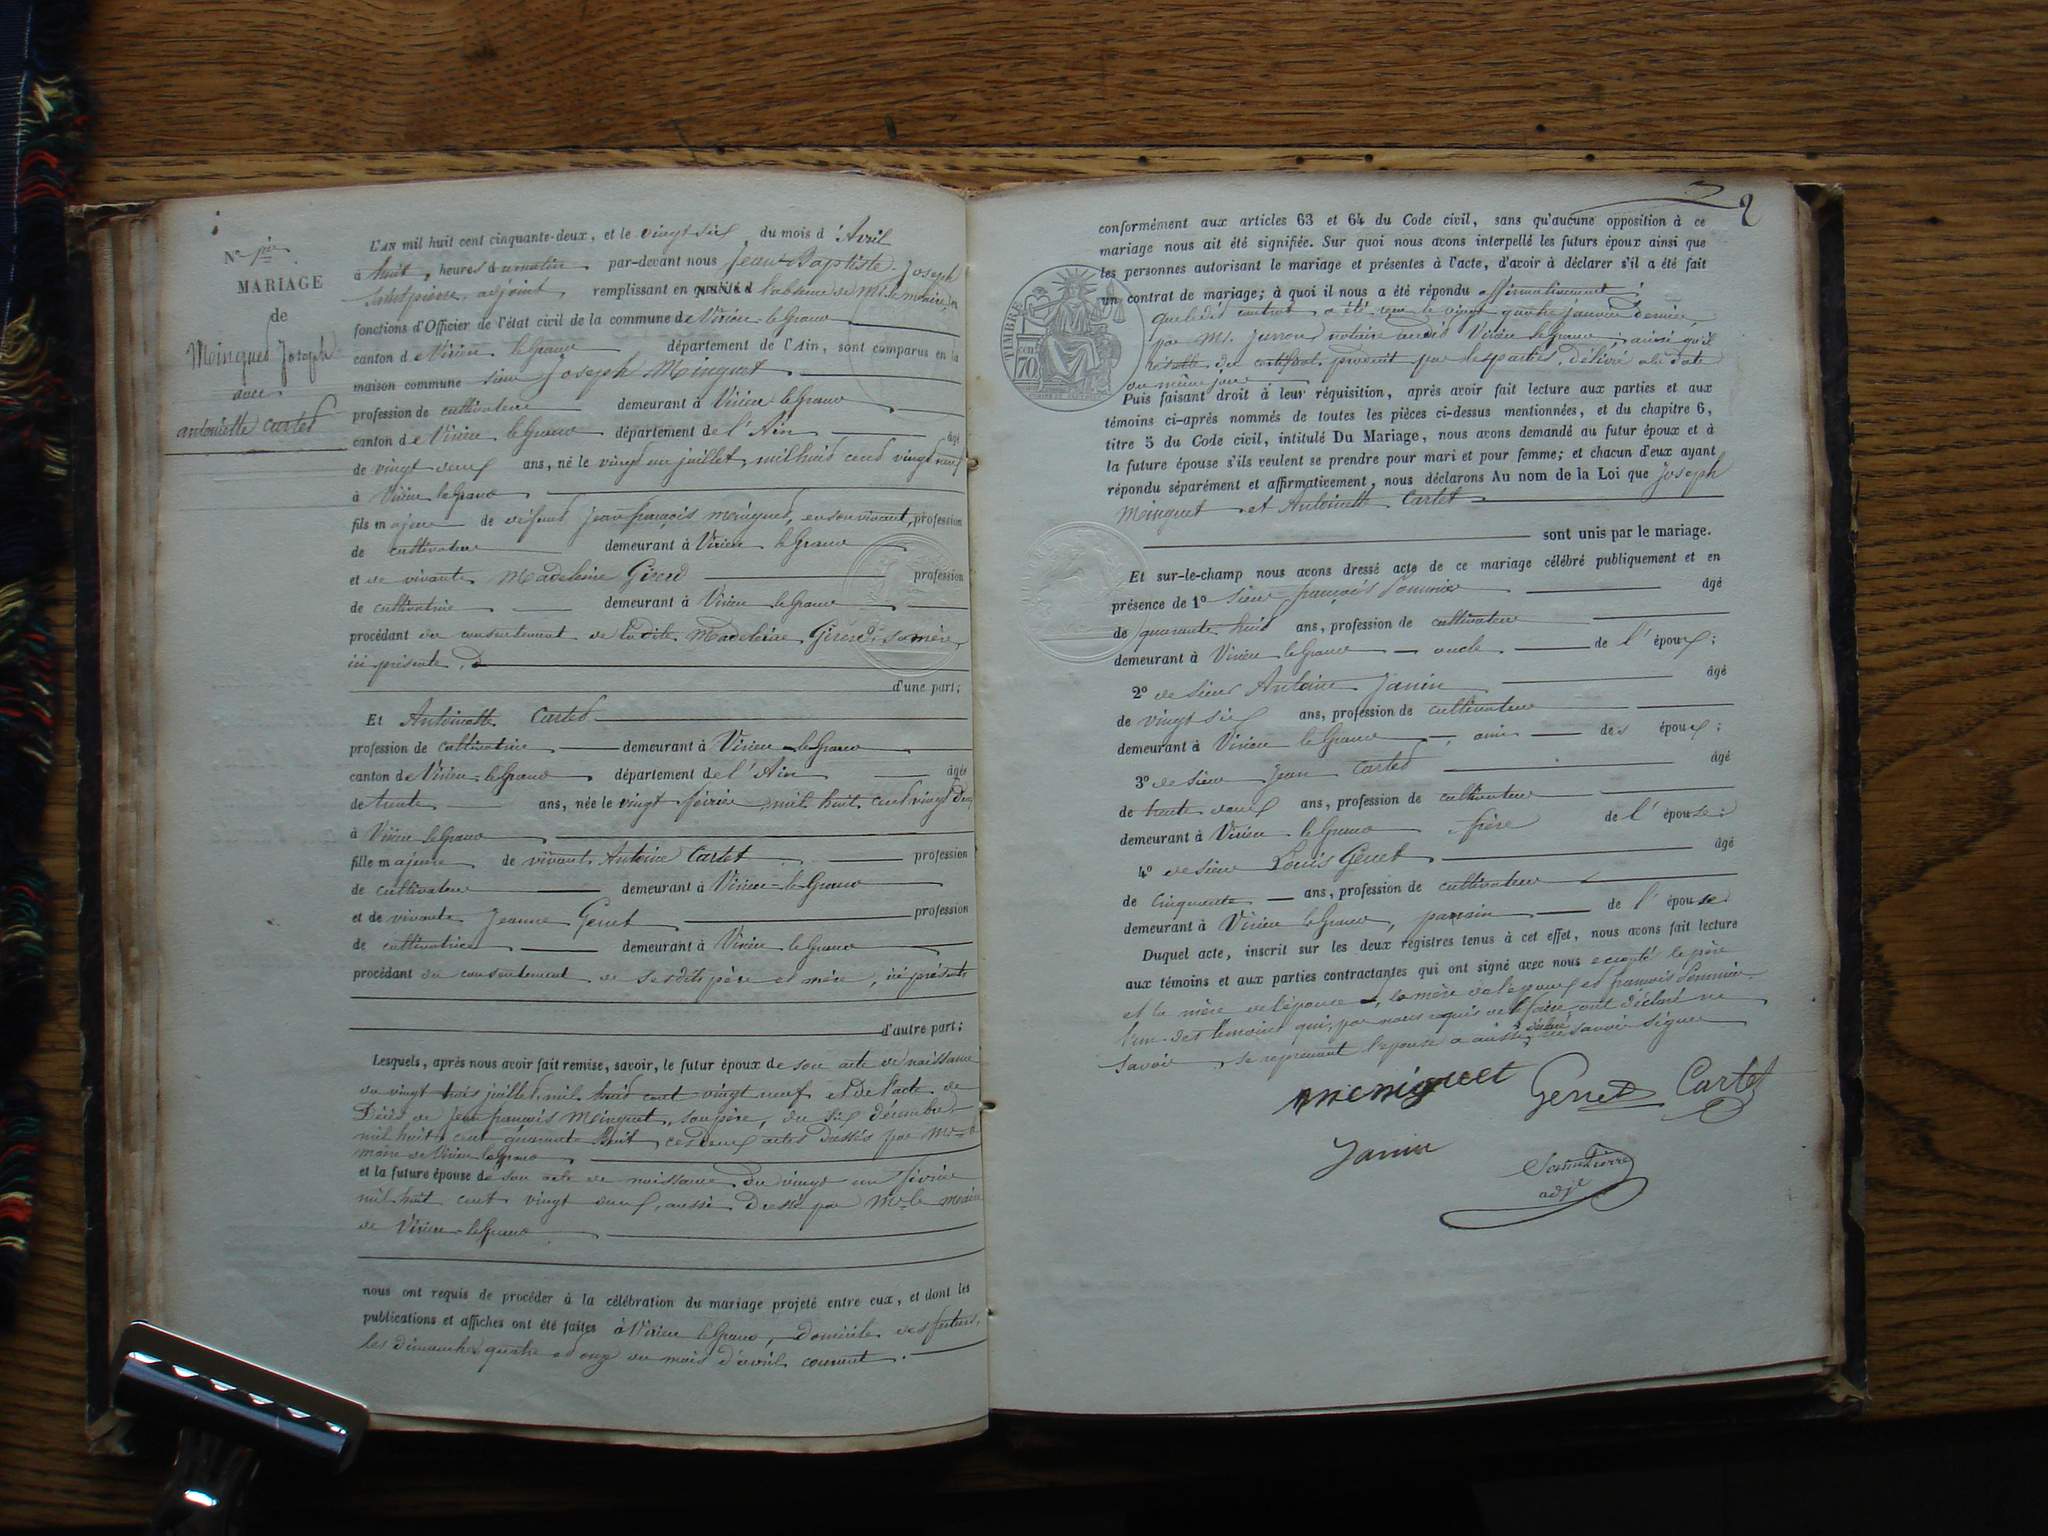 N° 1er
MARIAGE
de
Moinguet Joseph
avec
antoinette Cartet
L'AN mil huit cent cinquante-deux, et le vingt six du mois d'Avril
à huit, heures du matin par-devant nous Jean-Baptiste-Joseph
adjoint, remplissant en l'absence de Mr le maire, les
fonctions d'Officier de l'état civil de la commune de Virieu-le-Grand
canton de Virieu le Grand département de l'Ain, sont comparus en la
maison commune sieur Joseph Moinguet
profession de cultivateur demeurant à Virieu-le-Grand
canton de Virieu le Grand département de l'Ain âgé
de vingt deux ans, né le vingt un juillet mil huit cent vingt neuf
à Virieu le Grand
fils majeur de défunt Jean françois Moinguet, en son vivant, profession
de cultivateur demeurant à Virieu le Grand
et de vivante Madeleine Girerd profession
de cultivatrice demeurant à Virieu le Grand
procédant du consentement de ladite Madeleine Girerd, sa mère,
ici présente,
d'une part;
Et Antoinette Cartet
profession de cultivatrice demeurant à Virieu-le-Grand
canton de Virieu-le-Grand département de l'Ain âgée
de trente ans, née le vingt février mil huit cent vingt deux
à Virieu le Grand
fille majeure de vivant Antoine Cartet profession
de cultivateur demeurant à Virieu-le-Grand
et de vivante Jeanne Genet profession
de cultivatrice demeurant à Virieu le Grand
procédant du consentement de ses dits père et mère, ici présents
d'autre part;
Lesquels, après nous avoir fait remise, savoir, le futur époux de son acte de naissance
du vingt trois juillet mil huit cent vingt neuf et de l'acte de
Décès de Jean françois Moinguet, son père, du six décembre
mil huit cent quarante huit ces deux actes dressés par Mr le
maire de Virieu le Grand
et la future épouse de son acte de naissance du vingt un février
mil huit cent vingt deux, aussi dressé par Mr le Maire
de Virieu-le-Grand
nous ont requis de procéder à la célébration du mariage projeté entre eux, et dont les
publications et affiches ont été faites à Virieu le Grand, domicile des futurs,
les dimanches quatre et onze du mois d'avril courant.
2
conformément aux articles 63 et 64 du Code civil, sans qu'aucune opposition à ce
mariage nous ait été signifiée. Sur quoi nous avons interpellé les futurs époux ainsi que
les personnes autorisant le mariage et présentes à l'acte, d'avoir à déclarer s'il a été fait
un contrat de mariage; à quoi il nous a été répondu affirmativement;
Que ledit contrat a été reçu le vingt quatre janvier dernier
par Mr notaire audit Virieu le Grand, ainsi qu'il
résulte du certificat produit par les parties, délivré à la date
du même jour
TIMBRE
70
Puis faisant droit à leur réquisition, après avoir fait lecture aux parties et aux
témoins ci-après nommés de toutes les pièces ci-dessus mentionnées, et du chapitre 6,
titre 5 du Code civil, intitulé Du Mariage, nous avons demandé au futur époux et à
la future épouse s'ils veulent se prendre pour mari et pour femme; et chacun d'eux ayant
répondu séparément et affirmativement, nous déclarons Au nom de la Loi que Joseph
Moinguet et Antoinette Cartet
sont unis par le mariage.
Et sur-le-champ nous avons dressé acte de ce mariage célébré publiquement et en
présence de 1° Sieur françois Pommier âgé
de quarante huit ans, profession de cultivateur
demeurant à Virieu le Grand oncle de l'époux;
2° de sieur Antoine Janin âgé
de vingt six ans, profession de cultivateur
demeurant à Virieu le Grand, ami des époux;
3° de sieur Jean Cartet âgé
de trente deux ans, profession de cultivateur
demeurant à Virieu le Grand frère de l'épouse;
4° de sieur Louis Genet âgé
de cinquante ans, profession de cultivateur
demeurant à Virieu le Grand, parrain de l'épouse
Duquel acte, inscrit sur les deux registres tenus à cet effet, nous avons fait lecture
aux témoins et aux parties contractantes qui ont signé avec nous excepté le père
et la mère de l'épouse, la mère de l'époux et françois Pommier
l'un des témoins qui, par nous requis de le faire, ont déclaré ne
savoir, se reprenant l'épouse a aussi déclaré ne savoir signer
Menguet Genet Cartet
Janin
Saintpierre
adjt